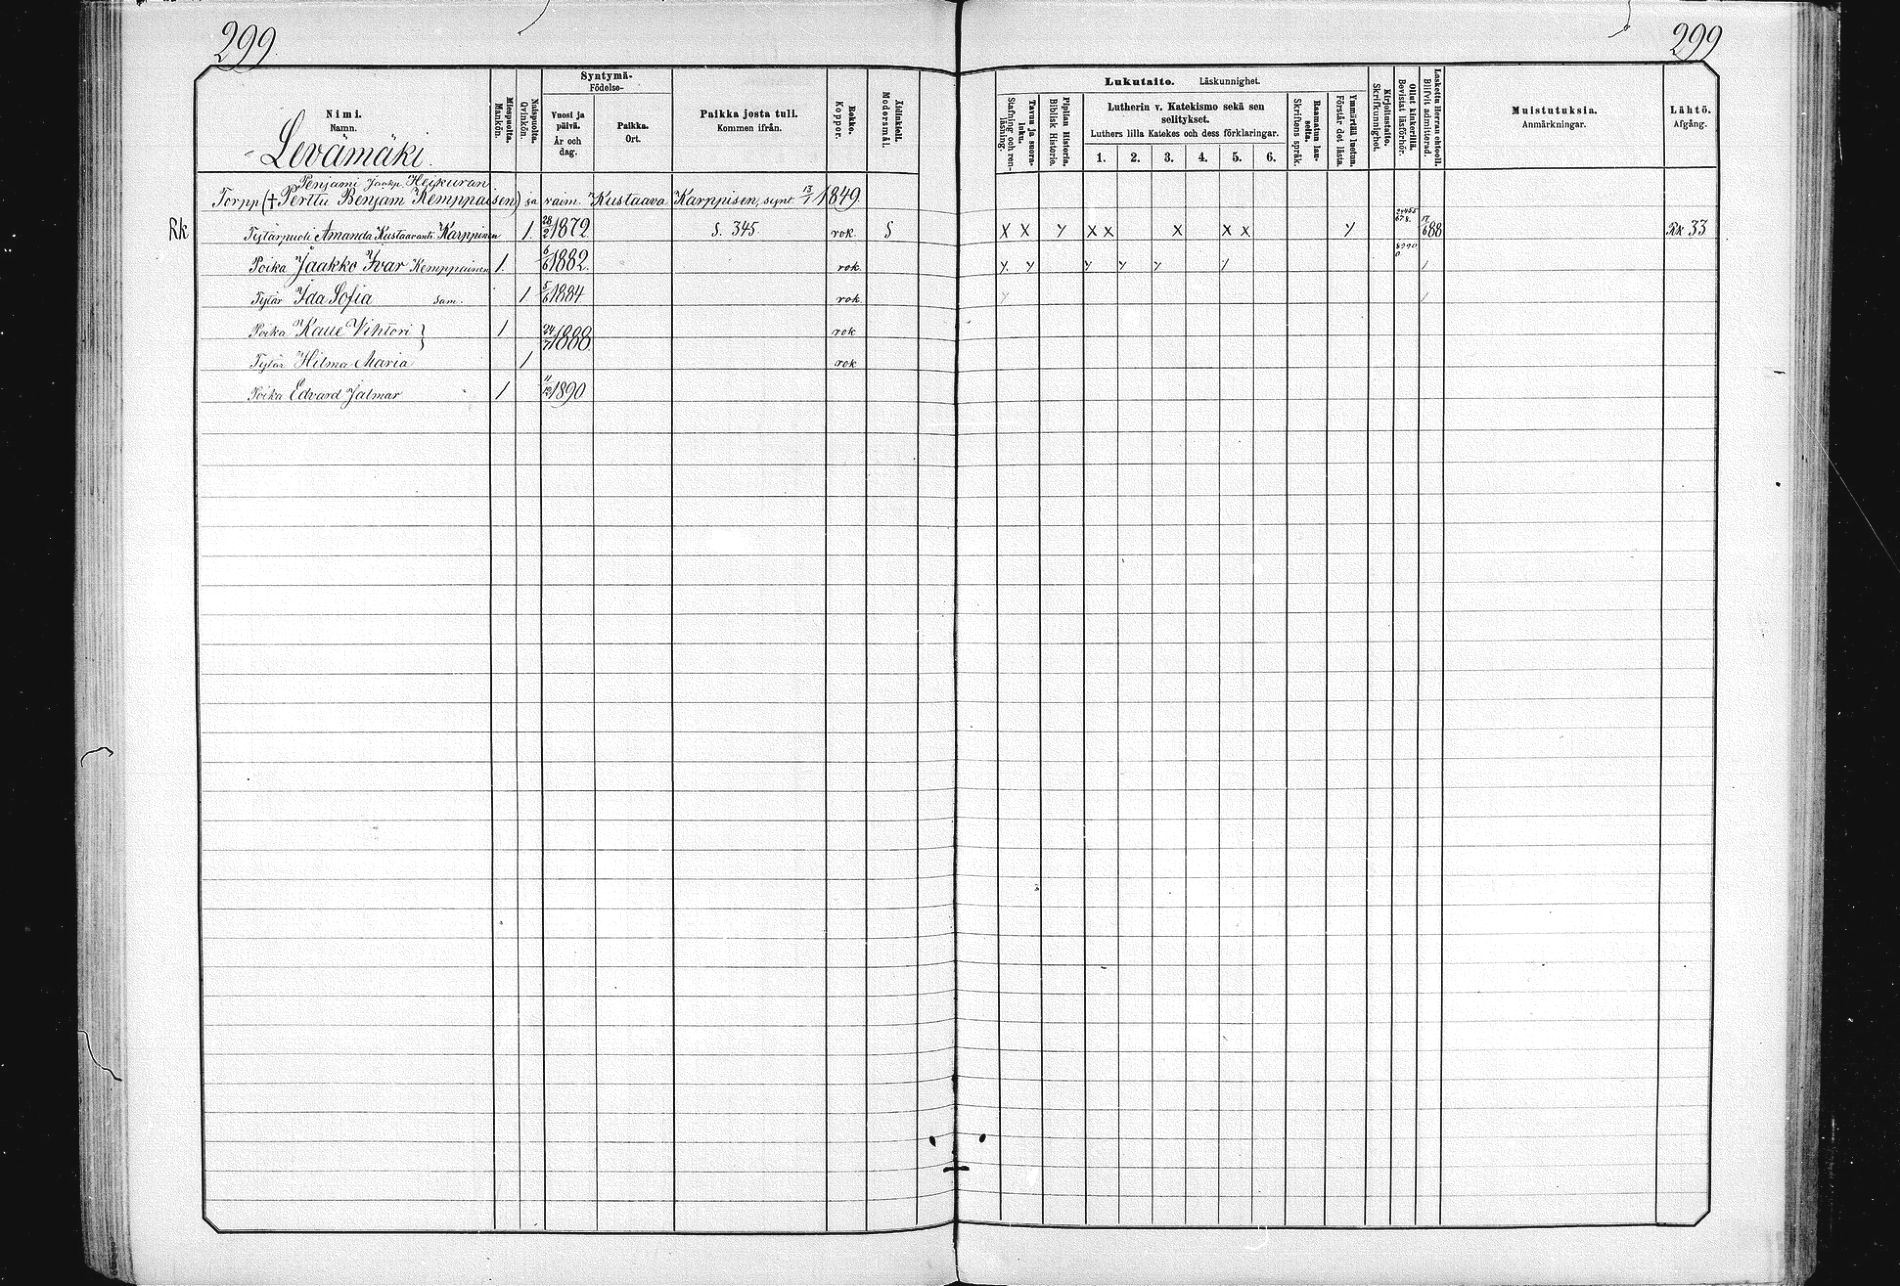 299
299
Nimi.
Namn.
Levämäki.
Miespuolta.
Mankön.
Naispuolta.
Qvinkön.
Syntymä-
Födelse-
Vuosi ja päivä.
År och dag.
Paikka.
Ort.
Paikka josta tuli.
Kommen ifrån.
Rokko.
Koppor.
Äidinkieli.
Modersmål.
Lukutaito. Läskunnighet.
Tavuu ja suora-luku.
Stafning och ren-läsning.
Piplian Historia.
Biblisk Historia.
Lutherin v. Katekismo sekä sen selitykset.
Luthers lilla Katekes och dess förklaringar.
1. 2. 3. 4. 5. 6.
Raamatun lau-seita.
Skriftens språk.
Ymmärtää luetun.
Förstår det lästa.
Kirjoitustaito.
Skrifkunnighet.
Ollut kinkerillä.
Bevistat läsförhör.
Laskettu Herran ehtool.
Blifvit admitterad.
Muistutuksia.
Anmärkningar.
Lähtö.
Afgång.
Penjami Jaakp. Heikuran
Torpp († Perttu Benjam Kemppaisen) ja vaim. Kustaava Karppisen, synt. 13/1 1849.
Rk Tytärpuoli Amanda Kustaavant. Karppinen 1. 28/2 1872. S. 345. rok. S X X Y X X X X X Y 17/6 88 Rk 33
Poika Jaakko Ivar Kemppainen 1. 6/6 1882. rok. Y Y Y Y Y Y 1
Tytär Ida Sofia sam. 1 5/6 1884 rok. Y 1
Poika Kalle Vihtori } 1 24/7 1888 rok
Tytär Hilma Maria 1 rok
Poika Edvard Jalmar 1 11/12 1890